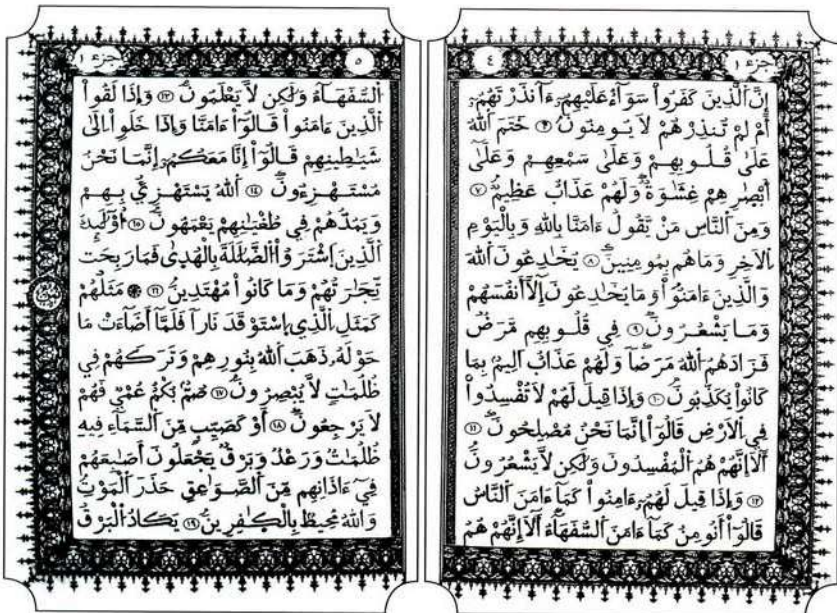 جزء ١
٤
إِنَّ اَ۬لذِينَ كَفَرُواْ سَوَآءٌ عَلَيْهِمُۥٓ ءَآنذَرْتَهُمُۥٓ
أَمْ لَمْ تُنذِرْهُمْ لَا يُومِنُونَۖ ٦ خَتَمَ اَ۬للَّهُ
عَلَىٰ قُلُوبِهِمْ وَعَلَىٰ سَمْعِهِمْ وَعَلَىٰٓ
أَبْصَٰرِهِمْ غِشَٰوَةٌۖ وَلَهُمْ عَذَابٌ عَظِيمٌۖ ٧
وَمِنَ اَ۬لنَّاسِ مَنْ يَّقُولُ ءَامَنَّا بِاللَّهِ وَبِالْيَوْمِ
اِ۬لَاخِرِ وَمَا هُم بِمُومِنِينَۖ ٨ يُخَٰدِعُونَ اَ۬للَّهَ
وَالَّذِينَ ءَامَنُواْۖ وَمَا يُخَٰدِعُونَ إِلَّآ أَنفُسَهُمْ
وَمَا يَشْعُرُونَۖ ٩ فِي قُلُوبِهِم مَّرَضٌ
فَزَادَهُمُ اُ۬للَّهُ مَرَضاٗۖ وَلَهُمْ عَذَابٌ اَلِيمُۢ بِمَا
كَانُواْ يُكَذِّبُونَۖ ١٠ وَإِذَا قِيلَ لَهُمْ لَا تُفْسِدُواْ
فِي اِ۬لَارْضِ قَالُوٓاْ إِنَّمَا نَحْنُ مُصْلِحُونَۖ ١١
أَلَآ إِنَّهُمْ هُمُ اُ۬لْمُفْسِدُونَ وَلَٰكِن لَّا يَشْعُرُونَۖ
١٢ وَإِذَا قِيلَ لَهُمُۥٓ ءَامِنُواْ كَمَآ ءَامَنَ اَ۬لنَّاسُ
قَالُوٓاْ أَنُومِنُ كَمَآ ءَامَنَ اَ۬لسُّفَهَآءُۖ اَ۬لَآ إِنَّهُمْ هُمُ
٥
جزء ١
اُ۬لسُّفَهَآءُ وَلَٰكِن لَّا يَعْلَمُونَۖ ١٣ وَإِذَا لَقُواْ
اُ۬لذِينَ ءَامَنُواْ قَالُوٓاْ ءَامَنَّا وَإِذَا خَلَوِاْ اِلَىٰ
شَيَٰطِينِهِمْ قَالُوٓاْ إِنَّا مَعَكُمُۥٓ إِنَّمَا نَحْنُ
مُسْتَهْزِءُونَۖ ١٤ اَ۬للَّهُ يَسْتَهْزِئُ بِهِمْ
وَيَمُدُّهُمْ فِي طُغْيَٰنِهِمْ يَعْمَهُونَۖ ١٥ أُوْلَٰٓئِكَ
اَ۬لذِينَ اَ۪شْتَرَوُاْ اُ۬لضَّلَٰلَةَ بِالْهُدَىٰ فَمَا رَبِحَت
تِّجَٰرَتُهُمْ وَمَا كَانُواْ مُهْتَدِينَۖ ١٦ ۞ مَثَلُهُمْ
كَمَثَلِ اِ۬لذِي اِ۪سْتَوْقَدَ نَاراٗ فَلَمَّآ أَضَآءَتْ مَا
حَوْلَهُۥ ذَهَبَ اَ۬للَّهُ بِنُورِهِمْ وَتَرَكَهُمْ فِي
ظُلُمَٰتٍ لَّا يُبْصِرُونَۖ ١٧ صُمُّۢ بُكْمٌ عُمْيٌ فَهُمْ
لَا يَرْجِعُونَۖ ١٨ أَوْ كَصَيِّبٍ مِّنَ اَ۬لسَّمَآءِ فِيهِ
ظُلُمَٰتٌ وَرَعْدٌ وَبَرْقٌ يَجْعَلُونَ أَصَٰبِعَهُمْ
فِيٓ ءَاذَانِهِم مِّنَ اَ۬لصَّوَٰعِقِ حَذَرَ اَ۬لْمَوْتِۖ
وَاللَّهُ مُحِيطُۢ بِالْكٰ۪فِرِينَۖ ١٩ يَكَادُ اُ۬لْبَرْقُ